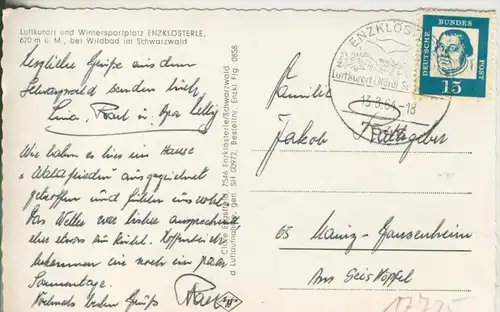 Luftkurort und Wintersportplatz ENZKLÖSTERLE,
620 m ü. M., bei Wildbad im Schwarzwald
Herzliche Grüße aus dem
Schwarzwald senden Euch,
Lina, Paul u. Opa
Wir haben es hier im Hause
"Waldfrieden" ausgezeichnet
getroffen und fühlen uns wohl.
Das Wetter war bisher
aber etwas zu kühl. Hoffentlich
bekommen wir noch ein paar
Sonnentage.
Nochmals herzl. Grüße Paul
7546 Enzklösterle/Schwarzwald
SH 00972, Bestellnr. Enzkl Flg. 0858
ENZKLÖSTERLE
Luftkurort
13.8.64-18
DEUTSCHE
BUNDES
POST
15
Familie
Jakob
65 Mainz-Gonsenheim
Am Geiskopfel
17725